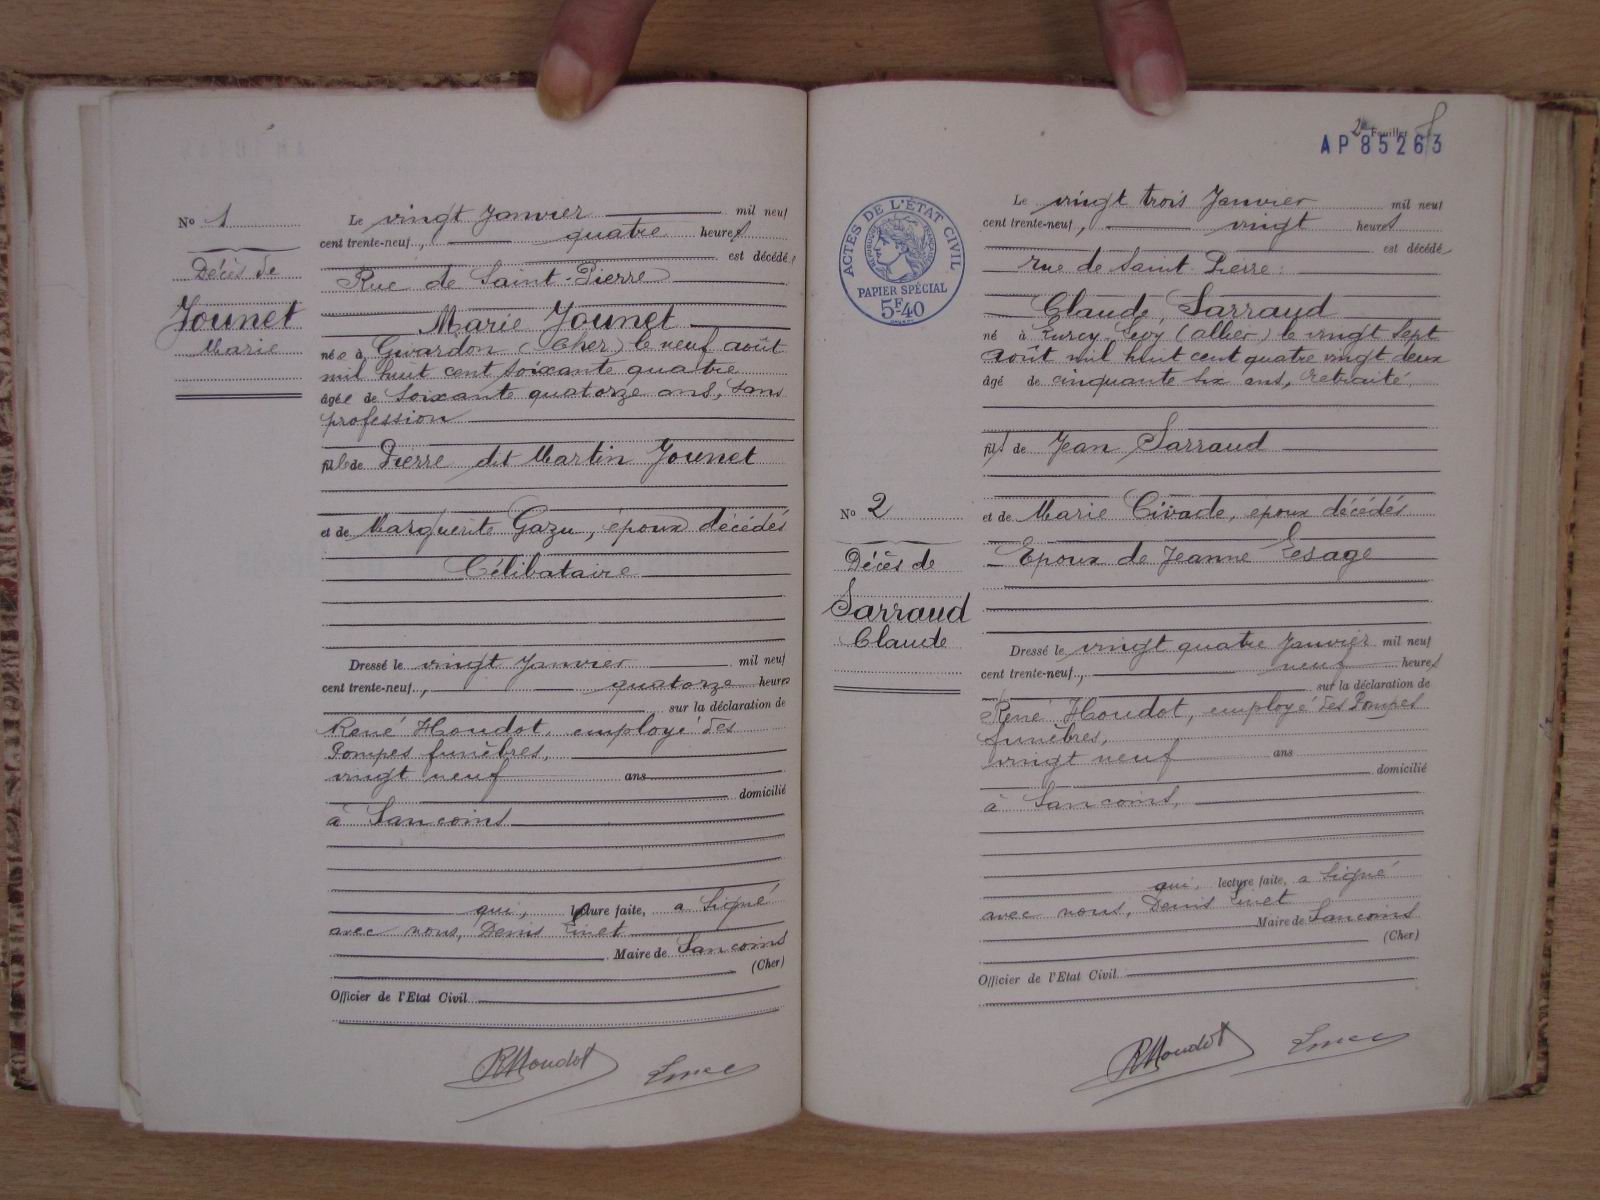 No 1
Décès de
Jounet
Marie
Le vingt Janvier mil neuf
cent trente-neuf, quatre heures
est décédée
Rue de Saint-Pierre
Marie Jounet
née à Givardon (Cher) le neuf août
mil huit cent soixante quatre
âgée de soixante quatorze ans, sans
profession
fille de Pierre dit Martin Jounet
et de Marguerite Gazu, époux décédés
Célibataire
Dressé le vingt Janvier mil neuf
cent trente-neuf, quatorze heures
sur la déclaration de
René Houdot, employé des
Pompes funèbres,
vingt neuf ans
domicilié
à Sancoins
qui, lecture faite, a signé
avec nous, Denis
Maire de Sancoins
(Cher)
Officier de l'Etat Civil
RHoudot
2e Feuillet
AP 85263
ACTES DE L'ÉTAT CIVIL
RÉPUBLIQUE FRANÇAISE
PAPIER SPÉCIAL
5F40
No 2
Décès de
Sarraud
Claude
Le vingt trois Janvier mil neuf
cent trente-neuf, vingt heures
est décédé
rue de Saint-Pierre
Claude Sarraud
né à Lurcy-Levy (Allier) le vingt sept
août mil huit cent quatre vingt deux
âgé de cinquante six ans, retraité
fils de Jean Sarraud
et de Marie Civade, époux décédés
Epoux de Jeanne Lesage
Dressé le vingt quatre Janvier mil neuf
cent trente-neuf, neuf heures
sur la déclaration de
René Houdot, employé des Pompes
funèbres,
vingt neuf ans
domicilié
à Sancoins,
qui, lecture faite, a signé
avec nous, Denis
Maire de Sancoins
(Cher)
Officier de l'Etat Civil
RHoudot